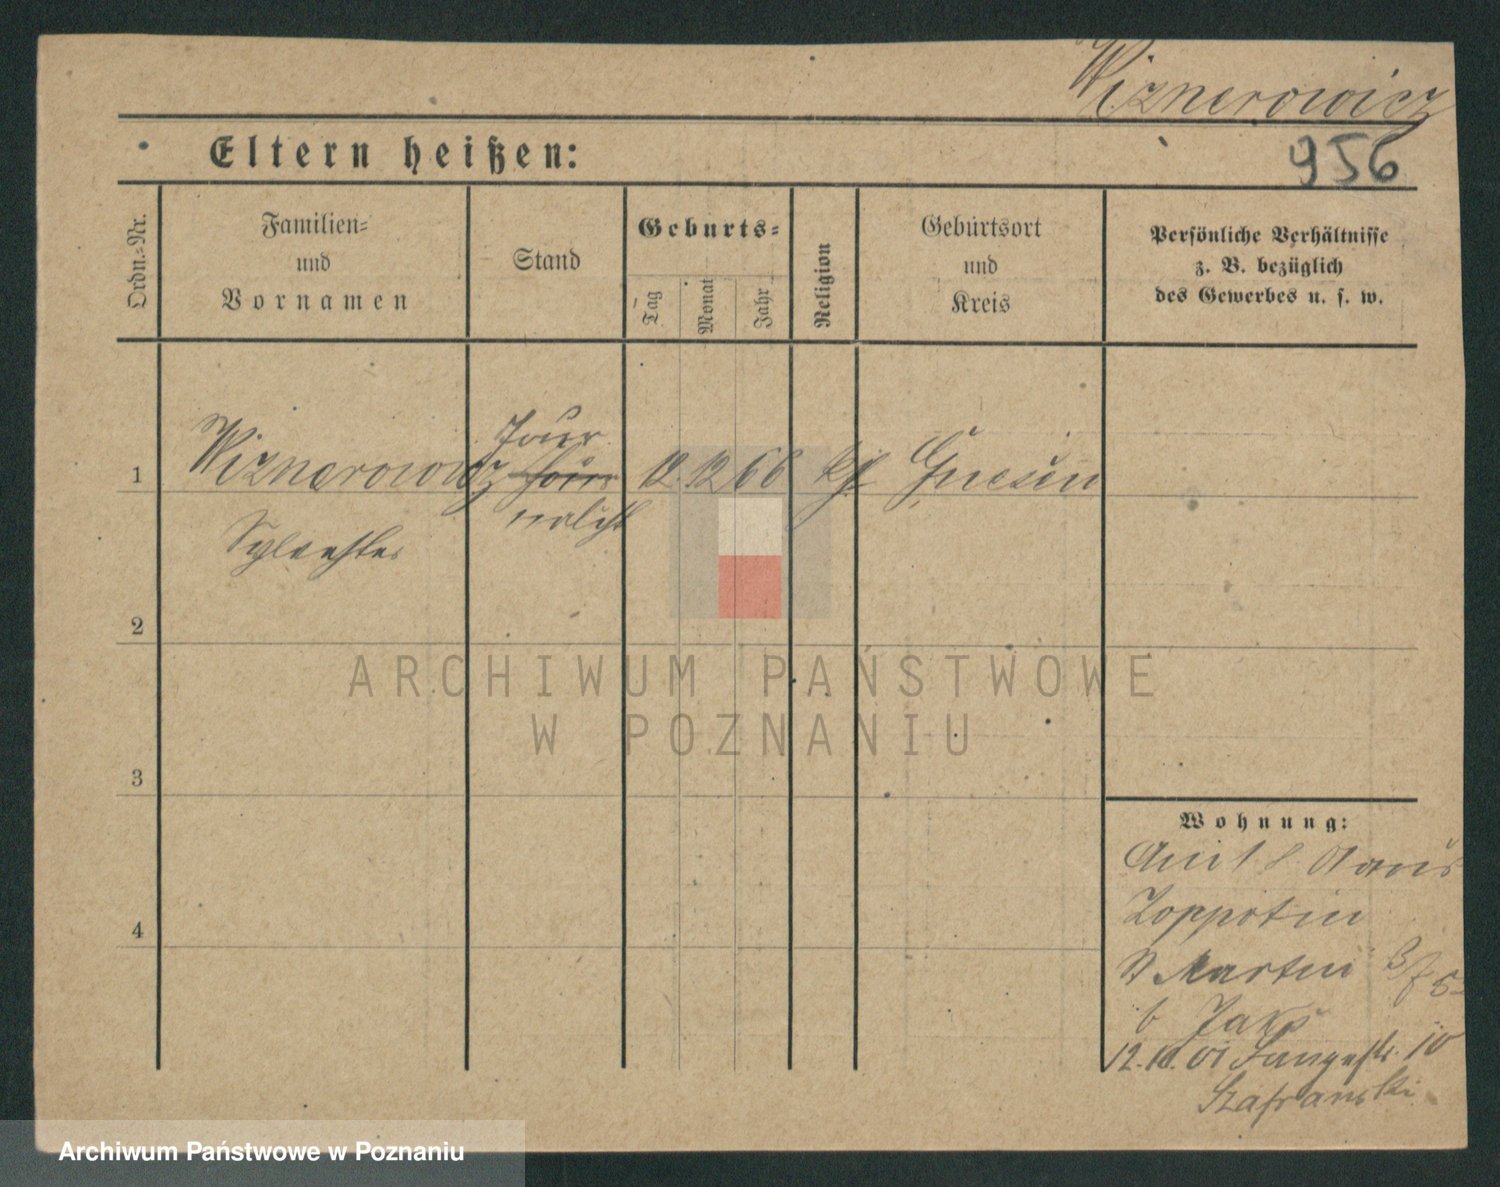 Wiznerowicz
956
Eltern heißen:
Ordn.-Nr.
Familien-
und
Vornamen
Stand
Geburts-
Tag
Monat
Jahr
Religion
Geburtsort
und
Kreis
Persönliche Verhältnisse
z. B. bezüglich
des Gewerbes u. s. w.
1
Wiznerowicz
Sylvester
Jour
nalist
12 12 66
kf
Gnesen
2
3
4
Wohnung:
Zoppot in
St Martin
b
12. 10. 01 Langestr. 10
Szafranski
ARCHIWUM PAŃSTWOWE
W POZNANIU
Archiwum Państwowe w Poznaniu